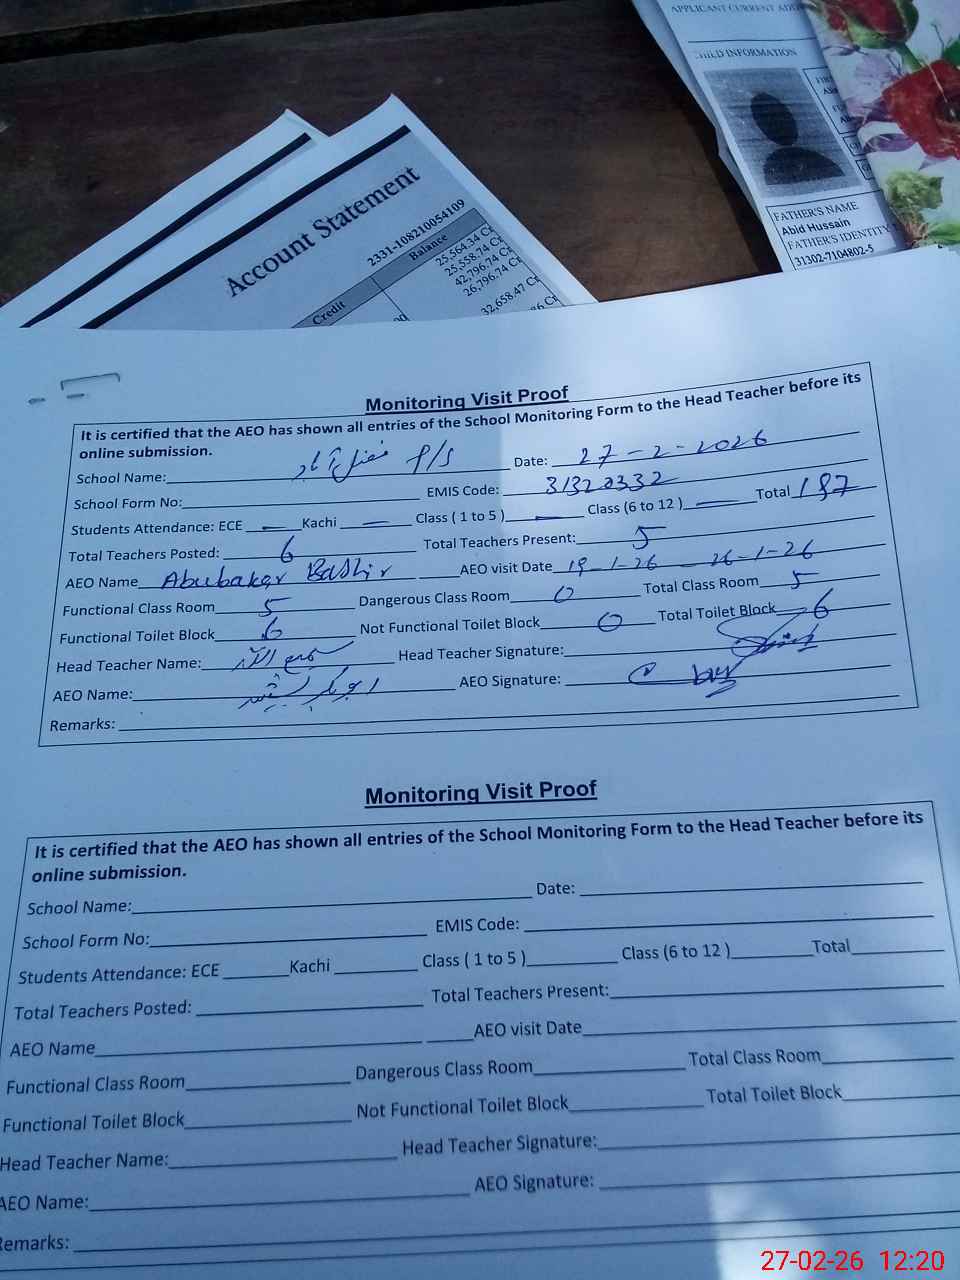 APPLICANT CURRENT ADD
CHILD INFORMATION
FATHER'S NAME
Abid Hussain
FATHER'S IDENTITY
31302-7104802-5
Account Statement
2331-108210054109
Credit Balance
25,564.34 Cr
25,558.74 Cr
42,796.74 Cr
26,796.74 Cr
32,658.47 Cr
Monitoring Visit Proof
It is certified that the AEO has shown all entries of the School Monitoring Form to the Head Teacher before its
online submission.
School Name: P/S Date: 27-2-2026
School Form No: EMIS Code: 31320332
Students Attendance: ECE — Kachi — Class ( 1 to 5 ) — Class (6 to 12 ) — Total 187
Total Teachers Posted: 6 Total Teachers Present: 5
AEO Name Abubakar Bashir AEO visit Date 19-1-26 26-1-26
Functional Class Room 5 Dangerous Class Room 0 Total Class Room 5
Functional Toilet Block 6 Not Functional Toilet Block 0 Total Toilet Block 6
Head Teacher Name: سمیع اللہ Head Teacher Signature:
AEO Name: ابوبکر بشیر AEO Signature:
Remarks:
Monitoring Visit Proof
It is certified that the AEO has shown all entries of the School Monitoring Form to the Head Teacher before its
online submission.
School Name: Date:
School Form No: EMIS Code:
Students Attendance: ECE Kachi Class ( 1 to 5 ) Class (6 to 12 ) Total
Total Teachers Posted: Total Teachers Present:
AEO Name AEO visit Date
Functional Class Room Dangerous Class Room Total Class Room
Functional Toilet Block Not Functional Toilet Block Total Toilet Block
Head Teacher Name: Head Teacher Signature:
AEO Name: AEO Signature:
Remarks:
27-02-26 12:20